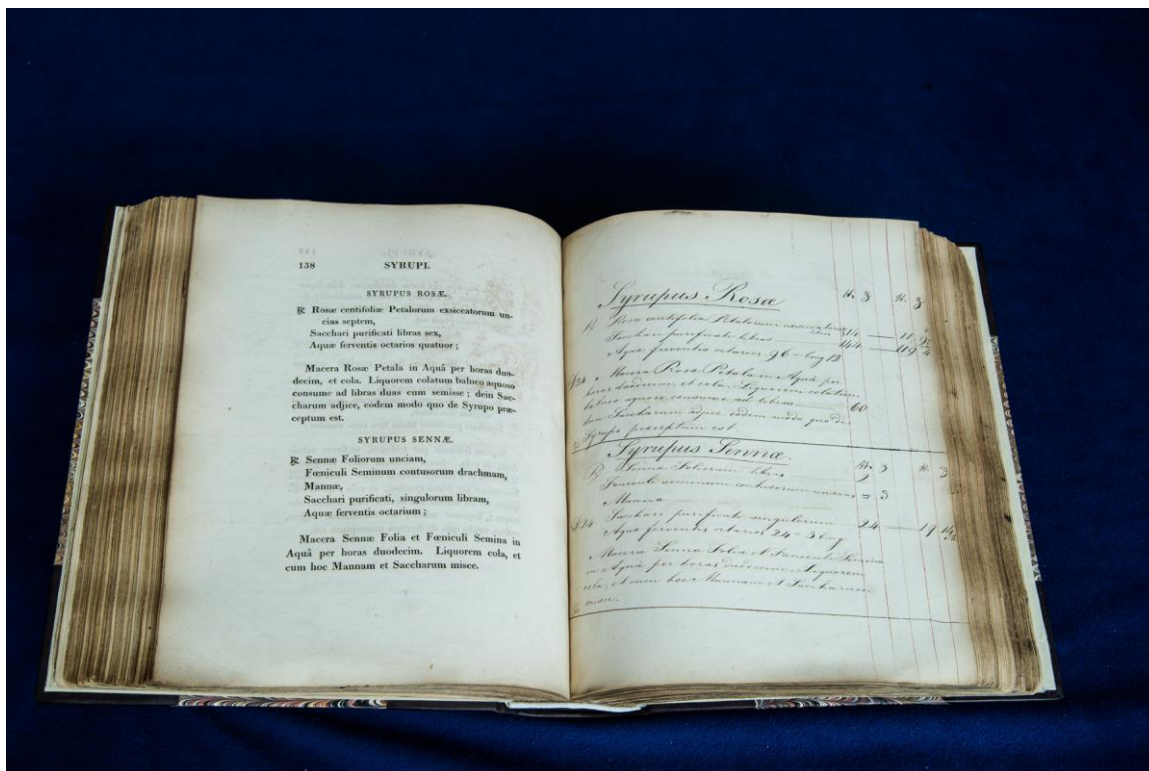 138 SYRUPI.
SYRUPUS ROSÆ.
℞ Rosæ centifoliæ Petalorum exsiccatorum un-
cias septem,
Sacchari purificati libras sex,
Aquæ ferventis octarios quatuor;
Macera Rosæ Petala in Aquâ per horas duo-
decim, et cola. Liquorem colatum balneo aquoso
consume ad libras duas cum semisse; dein Sac-
charum adjice, eodem modo quo de Syrupo præ-
ceptum est.
SYRUPUS SENNÆ.
℞ Sennæ Foliorum unciam,
Fœniculi Seminum contusorum drachmam,
Mannæ,
Sacchari purificati, singulorum libram,
Aquæ ferventis octarium;
Macera Sennæ Folia et Fœniculi Semina in
Aquâ per horas duodecim. Liquorem cola, et
cum hoc Mannam et Saccharum misce.
Syrupus Rosæ
℞ Rosa centifolia Petalorum 14 — 11
Sacchari purificati libras 144 — 119
Aqua ferventis octarios 96 = 12
Macera Rosa Petala in Aquâ per
horas duodecim et cola. Liquorem colatum
balneo aquoso consume ad libras 60
dein Saccharum adjice eodem modo quo de
Syrupo præceptum est
Syrupus Sennæ.
℞ Senna Foliorum libras 2
Fœniculi seminum contusorum uncias 3
Manna
Sacchari purificati singulorum 24 — 19
Aqua ferventis octarios 24 = 3
Macera Senna Folia et Fœniculi Semina
in Aquâ per horas duodecim. Liquorem
cola, et cum hoc Mannam et Saccharum
misce.